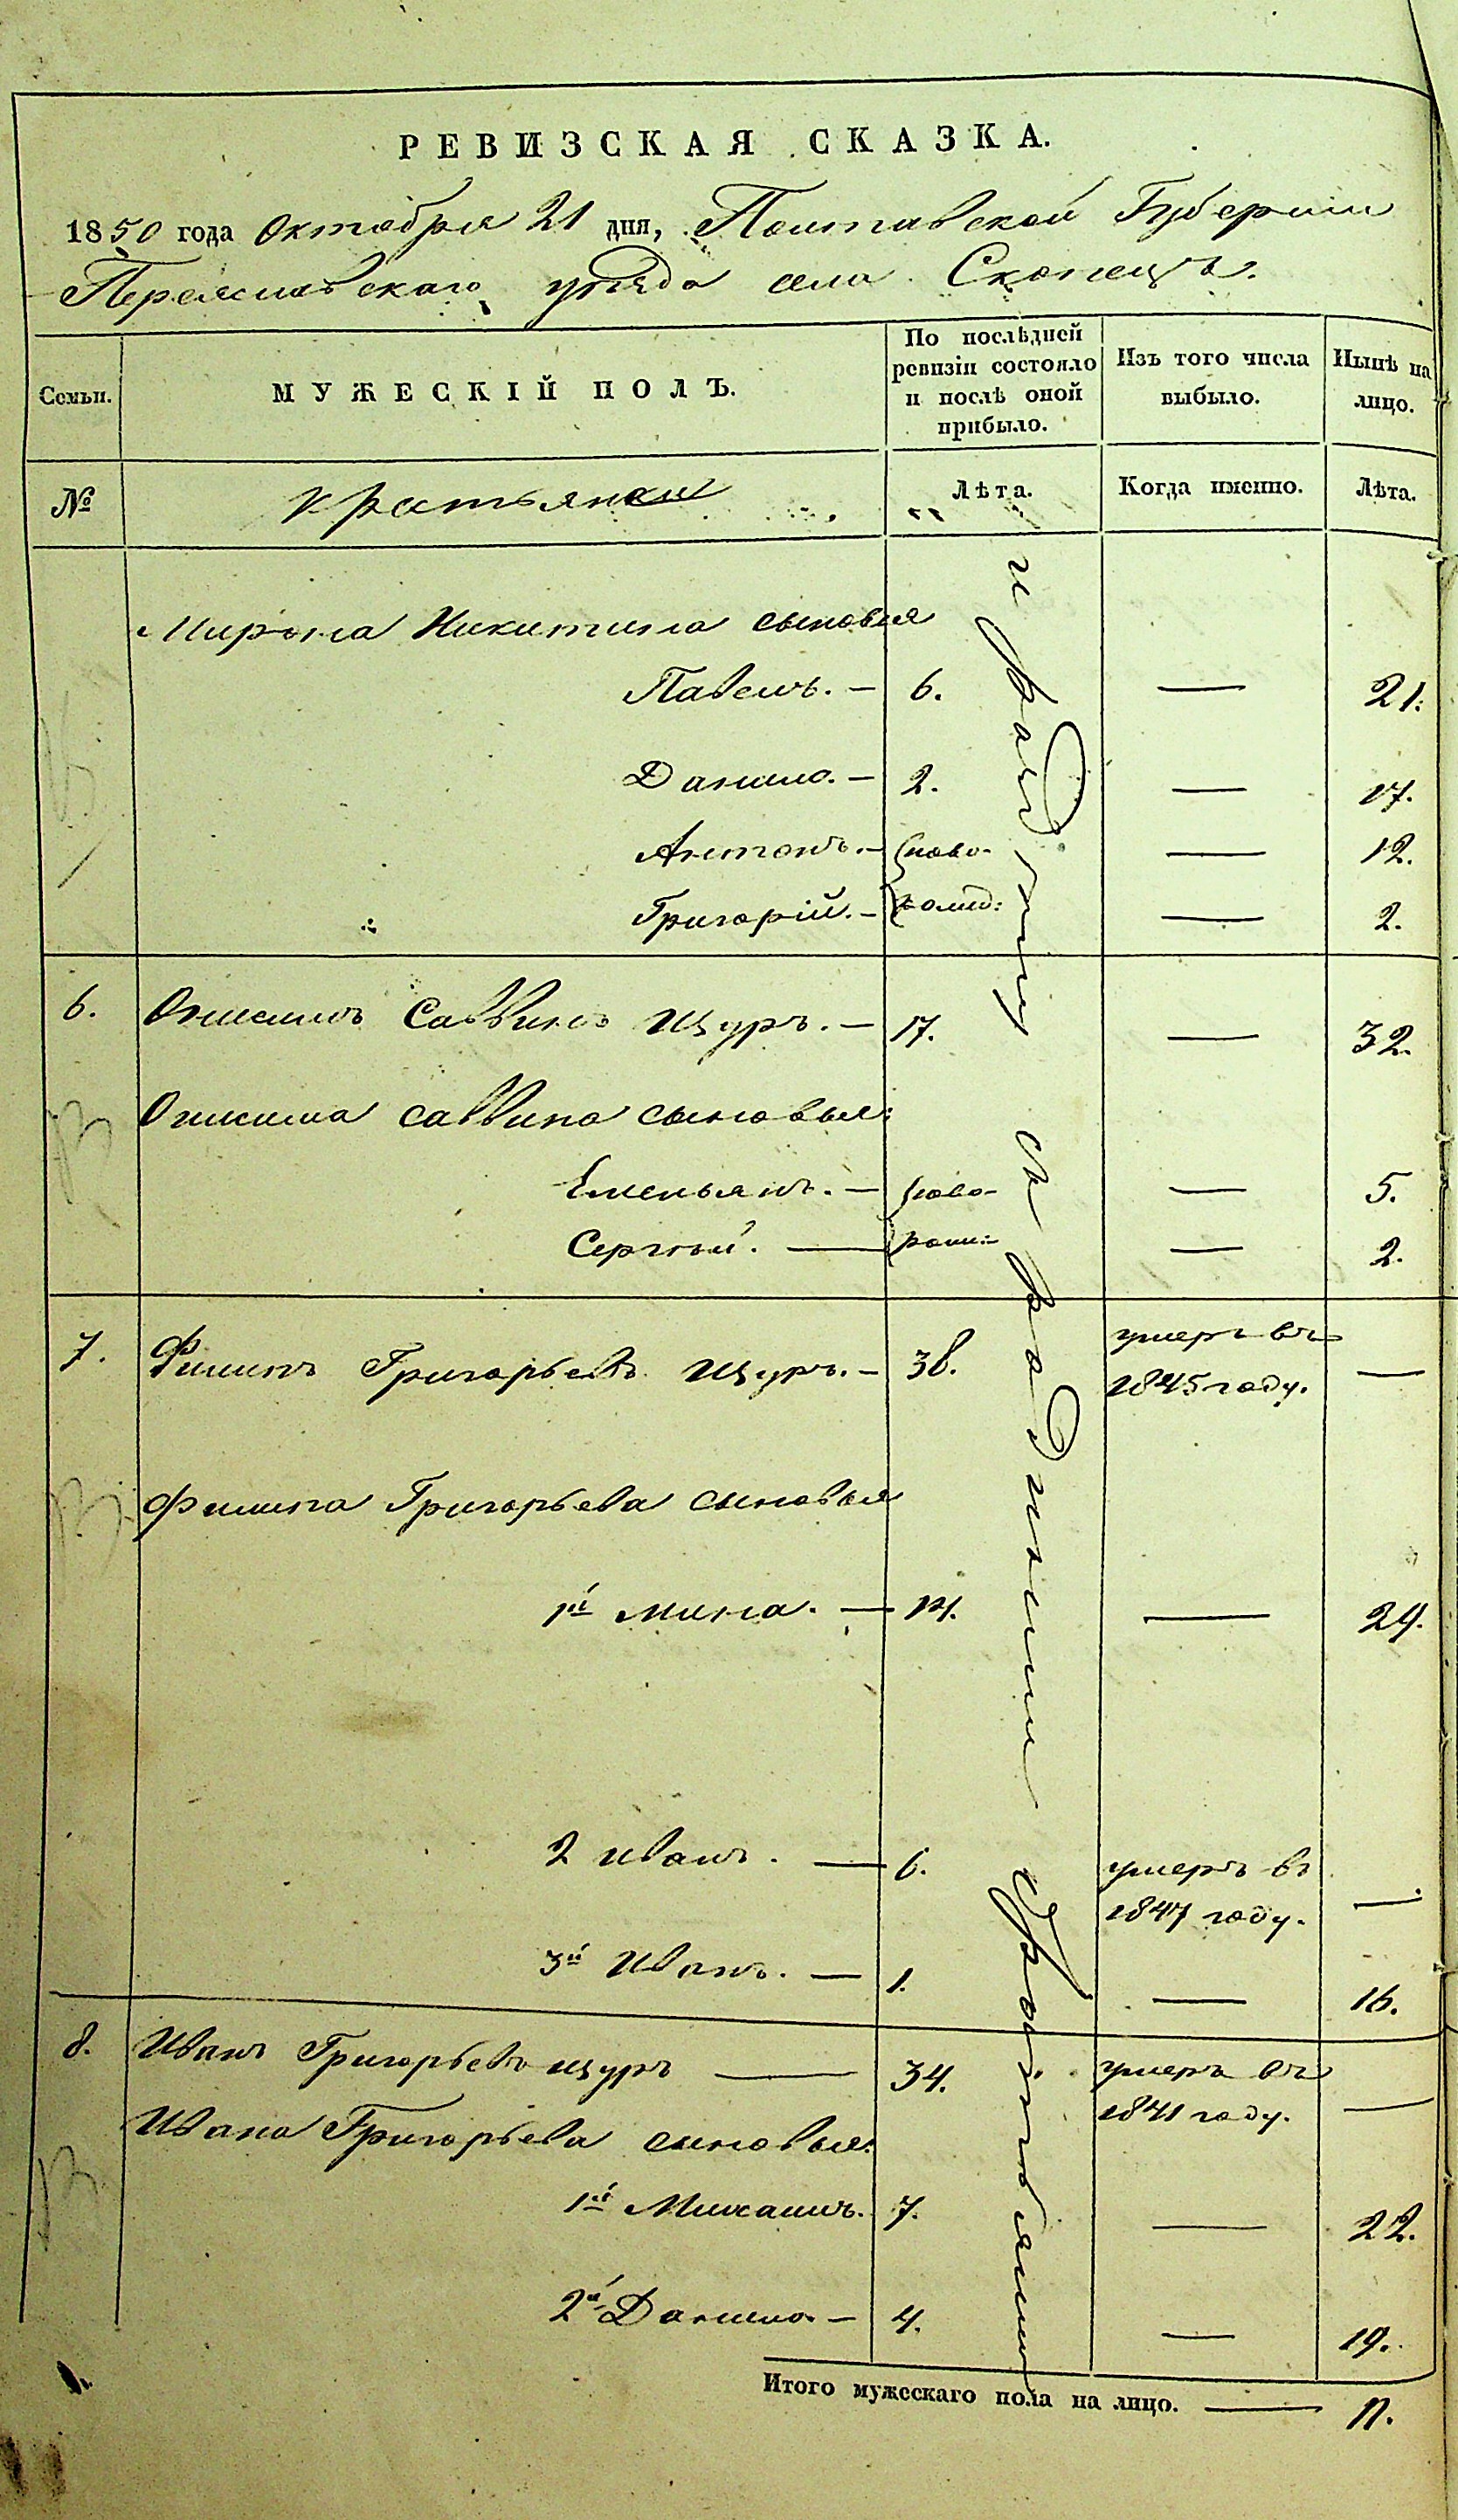 РЕВИЗСКАЯ СКАЗКА.
1850 года Октября 21 дня, Полтавской Губернии
Переяславскаго уѣзда села Скопецъ.
Семьи. МУЖЕСКІЙ ПОЛЪ. По послѣдней ревизіи состояло и послѣ оной прибыло. Изъ того числа выбыло. Нынѣ на лицо.
№ Лѣта. Когда именно. Лѣта.
Мирона Никитина сыновья
Павелъ. — 6. — 21.
Данило. — 2. — 17.
Антонъ. — ново- — 12.
Григорій. — рожд: — 2.
6. Онисимъ Саввинъ Щуръ. — 17. — 32.
Онисима Саввина сыновья:
Емельянъ. — ново- — 5.
Сергѣй. — рожд: — 2.
7. Филипъ Григорьевъ Щуръ. — 38. умеръ въ 1845 году. —
Филипа Григорьева сыновья
1й Мина. — 14. — 29.
2 Иванъ. — 6. умеръ въ 1847 году. —
3й Иванъ. — 1. — 16.
8. Иванъ Григорьевъ Щуръ — 34. умеръ въ 1841 году. —
Ивана Григорьева сыновья:
1й Михаилъ. 7. — 22.
2й Данило. — 4. — 19.
Итого мужескаго пола на лицо. — 11.